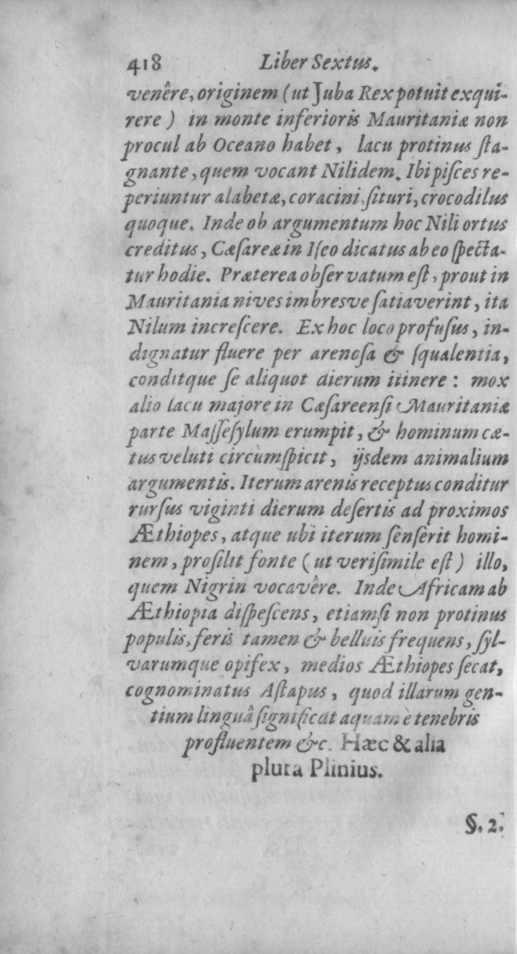 418 Liber Sextus.
venêre, originem (ut Juba Rex potuit exqui-
rere) in monte inferioris Mauritaniæ non
procul ab Oceano habet, lacu protinus sta-
gnante, quem vocant Nilidem. Ibi pisces re-
periuntur alabetæ, coracini, situri, crocodilus
quoque. Inde ob argumentum hoc Nili ortus
creditus, Cæsareæ in Iseo dicatus ab eo specta-
tur hodie. Præterea observatum est, prout in
Mauritania nives imbresve satiaverint, ita
Nilum increscere. Ex hoc loco profusus, in-
dignatur fluere per arenosa & squalentia,
conditque se aliquot dierum itinere: mox
alio lacu majore in Cæsareensi Mauritaniæ
parte Massesylum erumpit, & hominum cæ-
tus veluti circumspicit, ijsdem animalium
argumentis. Iterum arenis receptus conditur
rursus viginti dierum desertis ad proximos
Æthiopes, atque ubi iterum senserit homi-
nem, prosilit fonte (ut verisimile est) illo,
quem Nigrin vocavêre. Inde Africam ab
Æthiopia dispescens, etiamsi non protinus
populis, feris tamen & belluis frequens, syl-
varumque opifex, medios Æthiopes secat,
cognominatus Astapus, quod illarum gen-
tium linguâ significat aquam è tenebris
profluentem &c. Hæc & alia
plura Plinius.
§. 2.